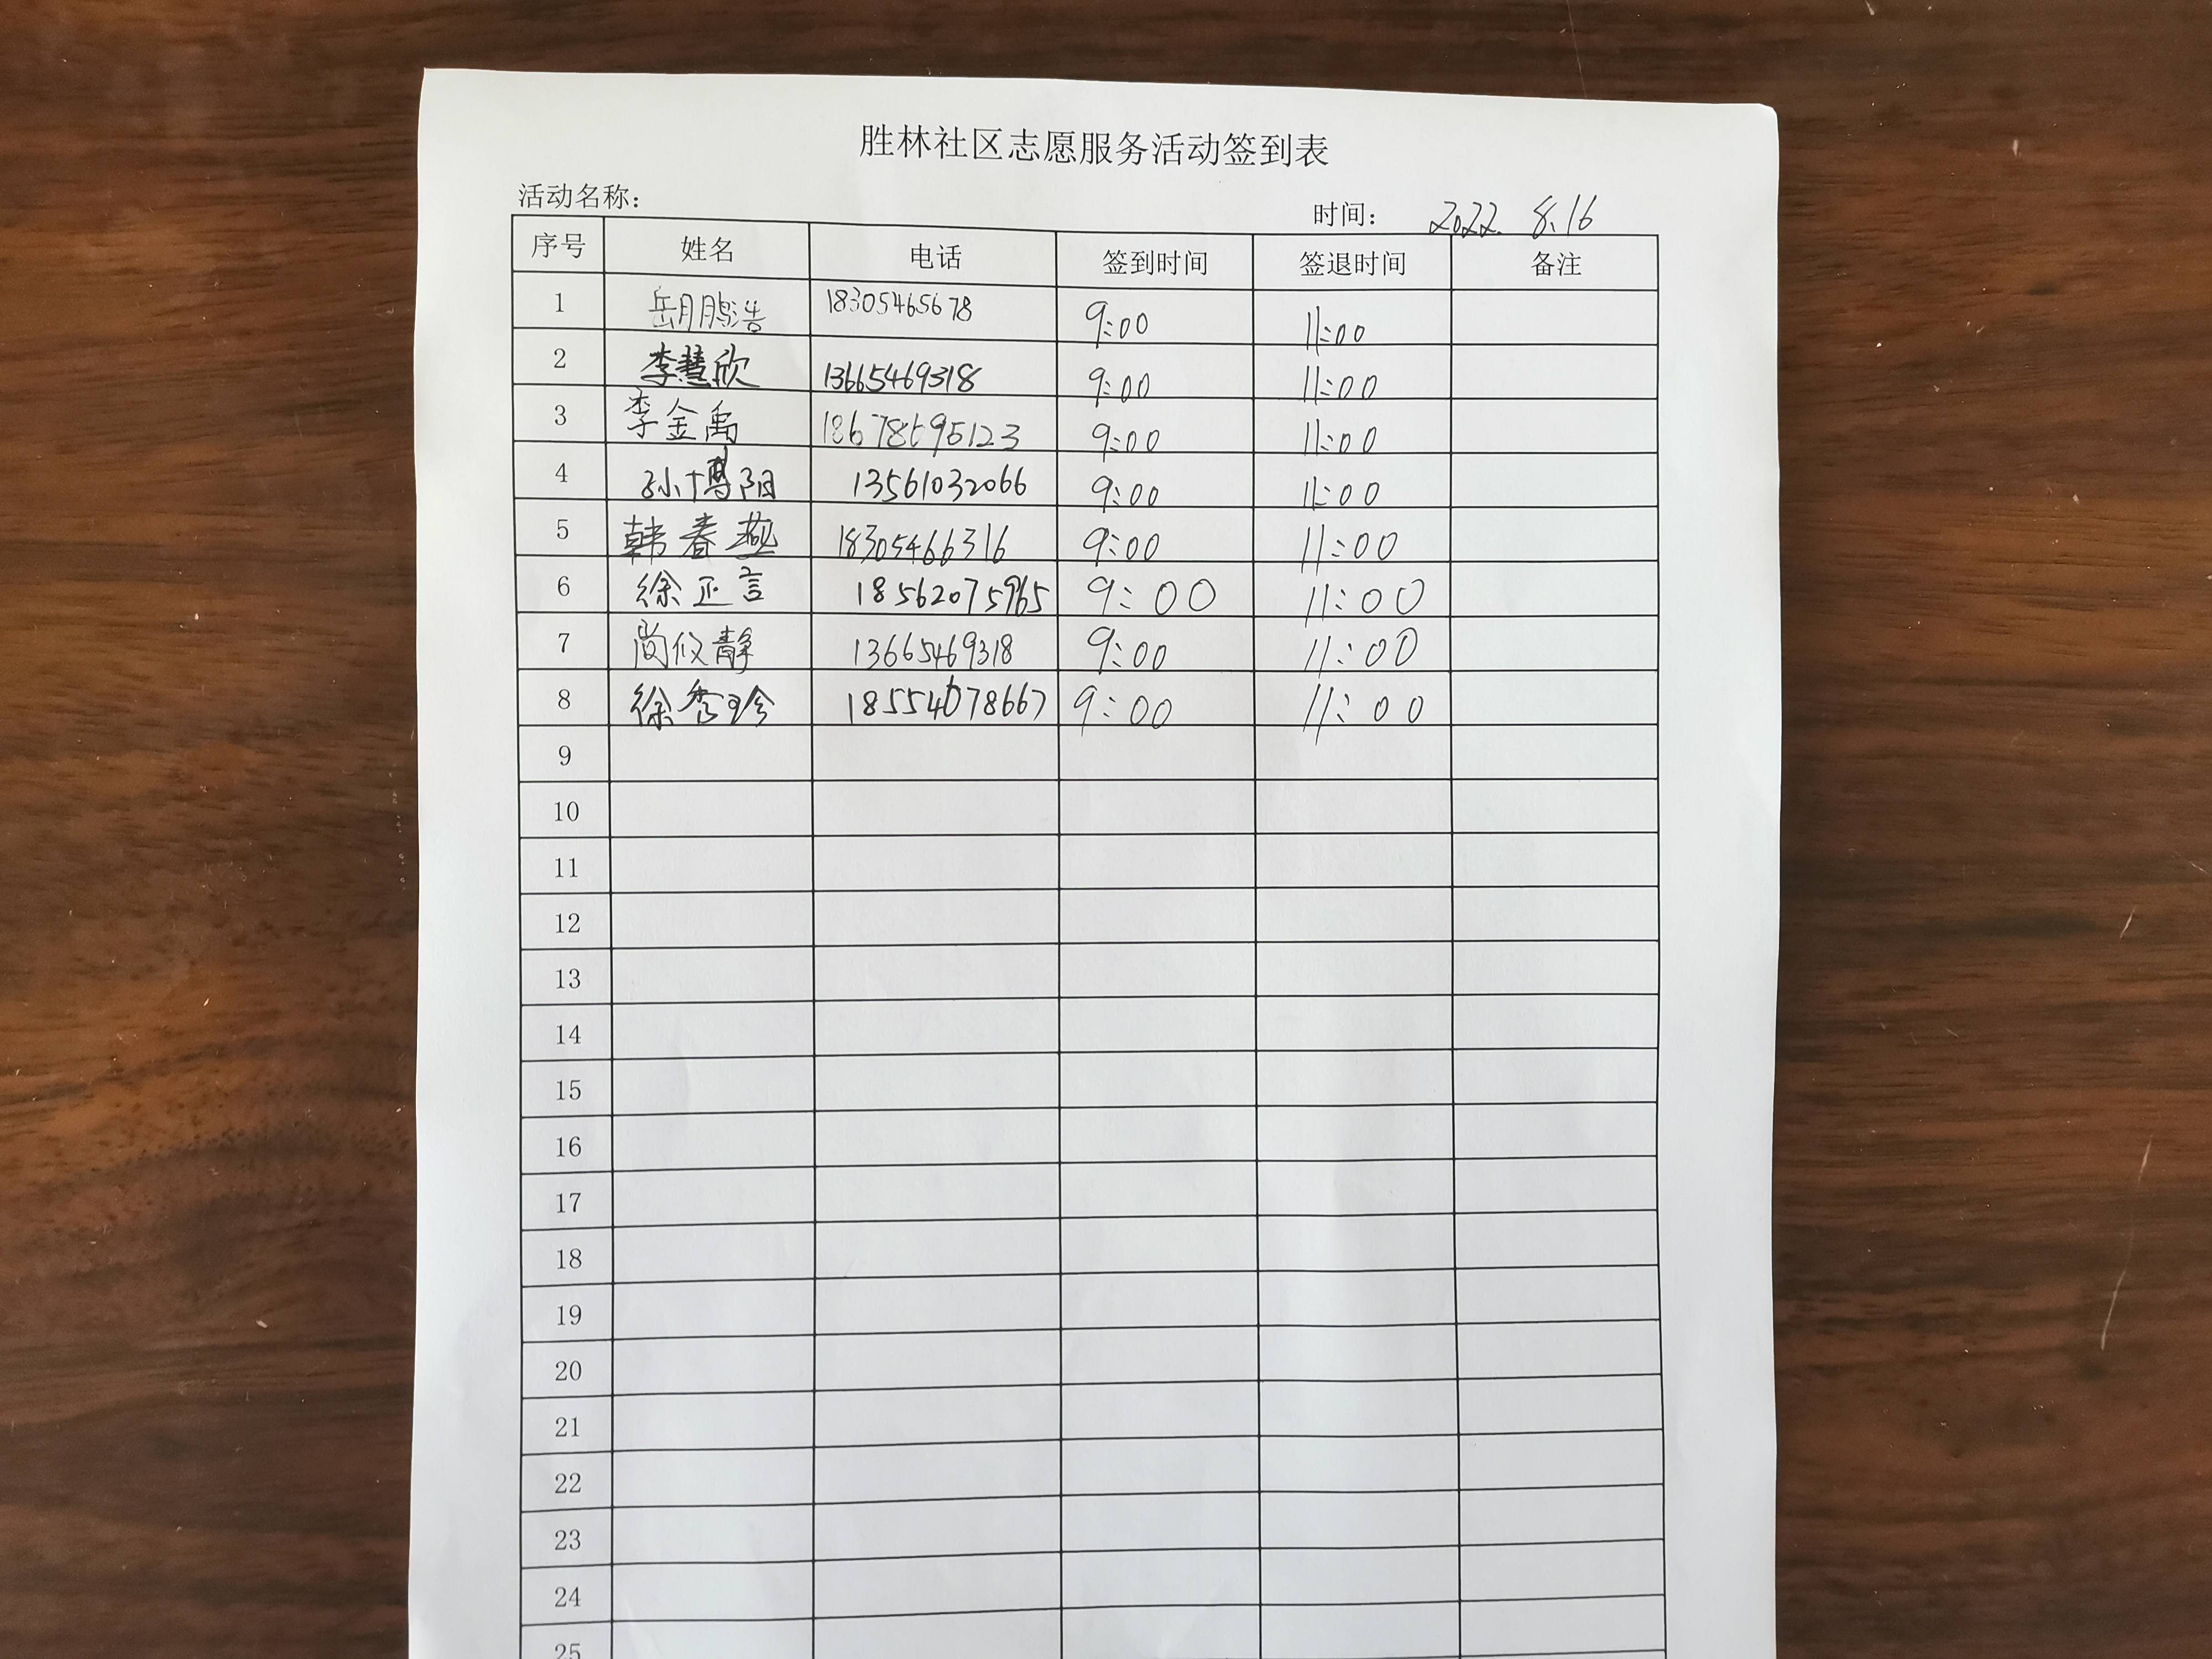 胜林社区志愿服务活动签到表
活动名称：
时间： 2022. 8.16
序号 姓名 电话 签到时间 签退时间 备注
1 岳朋鸿浩 18305465678 9:00 11:00
2 李慧欣 13665469318 9:00 11:00
3 李金禹 9:00 11:00
4 孙博阳 13561032066 9:00 11:00
5 韩春燕 18305466316 9:00 11:00
6 徐正言 18562075965 9:00 11:00
7 尚俊静 13665469318 9:00 11:00
8 徐秀珍 18554078667 9:00 11:00
9
10
11
12
13
14
15
16
17
18
19
20
21
22
23
24
25